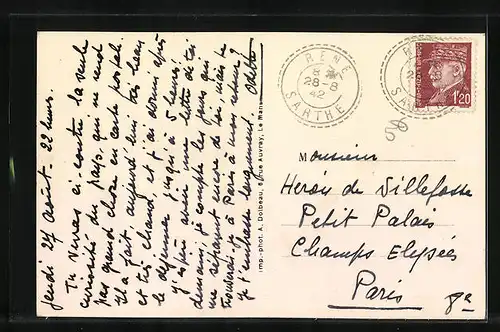 Jeudi 27 août. 22 heures.
Tu verras ci-contre la seule
curiosité du pays, qui ne rend
pas grand chose en carte postale.
Il a fait aujourd'hui très beau
et très chaud, et j'ai dormi après
le déjeuner jusqu'à 5 heures!
J'espère avoir une lettre de toi
demain; je compte les jours qui
me séparent encore de toi, mais te
trouverai-je à Paris à mon retour?
Je t'embrasse longuement.
Imp.-phot. A. Dolbeau, 8, rue Auvray, Le Mans
RENÉ
28-8
42
SARTHE
1f20
Monsieur
Héron de Villefosse
Petit Palais
Champs Elysées
Paris 8e